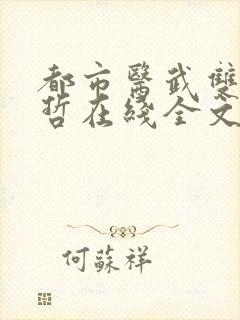 都市醫武雙
哲在綫全文
何蘇祥